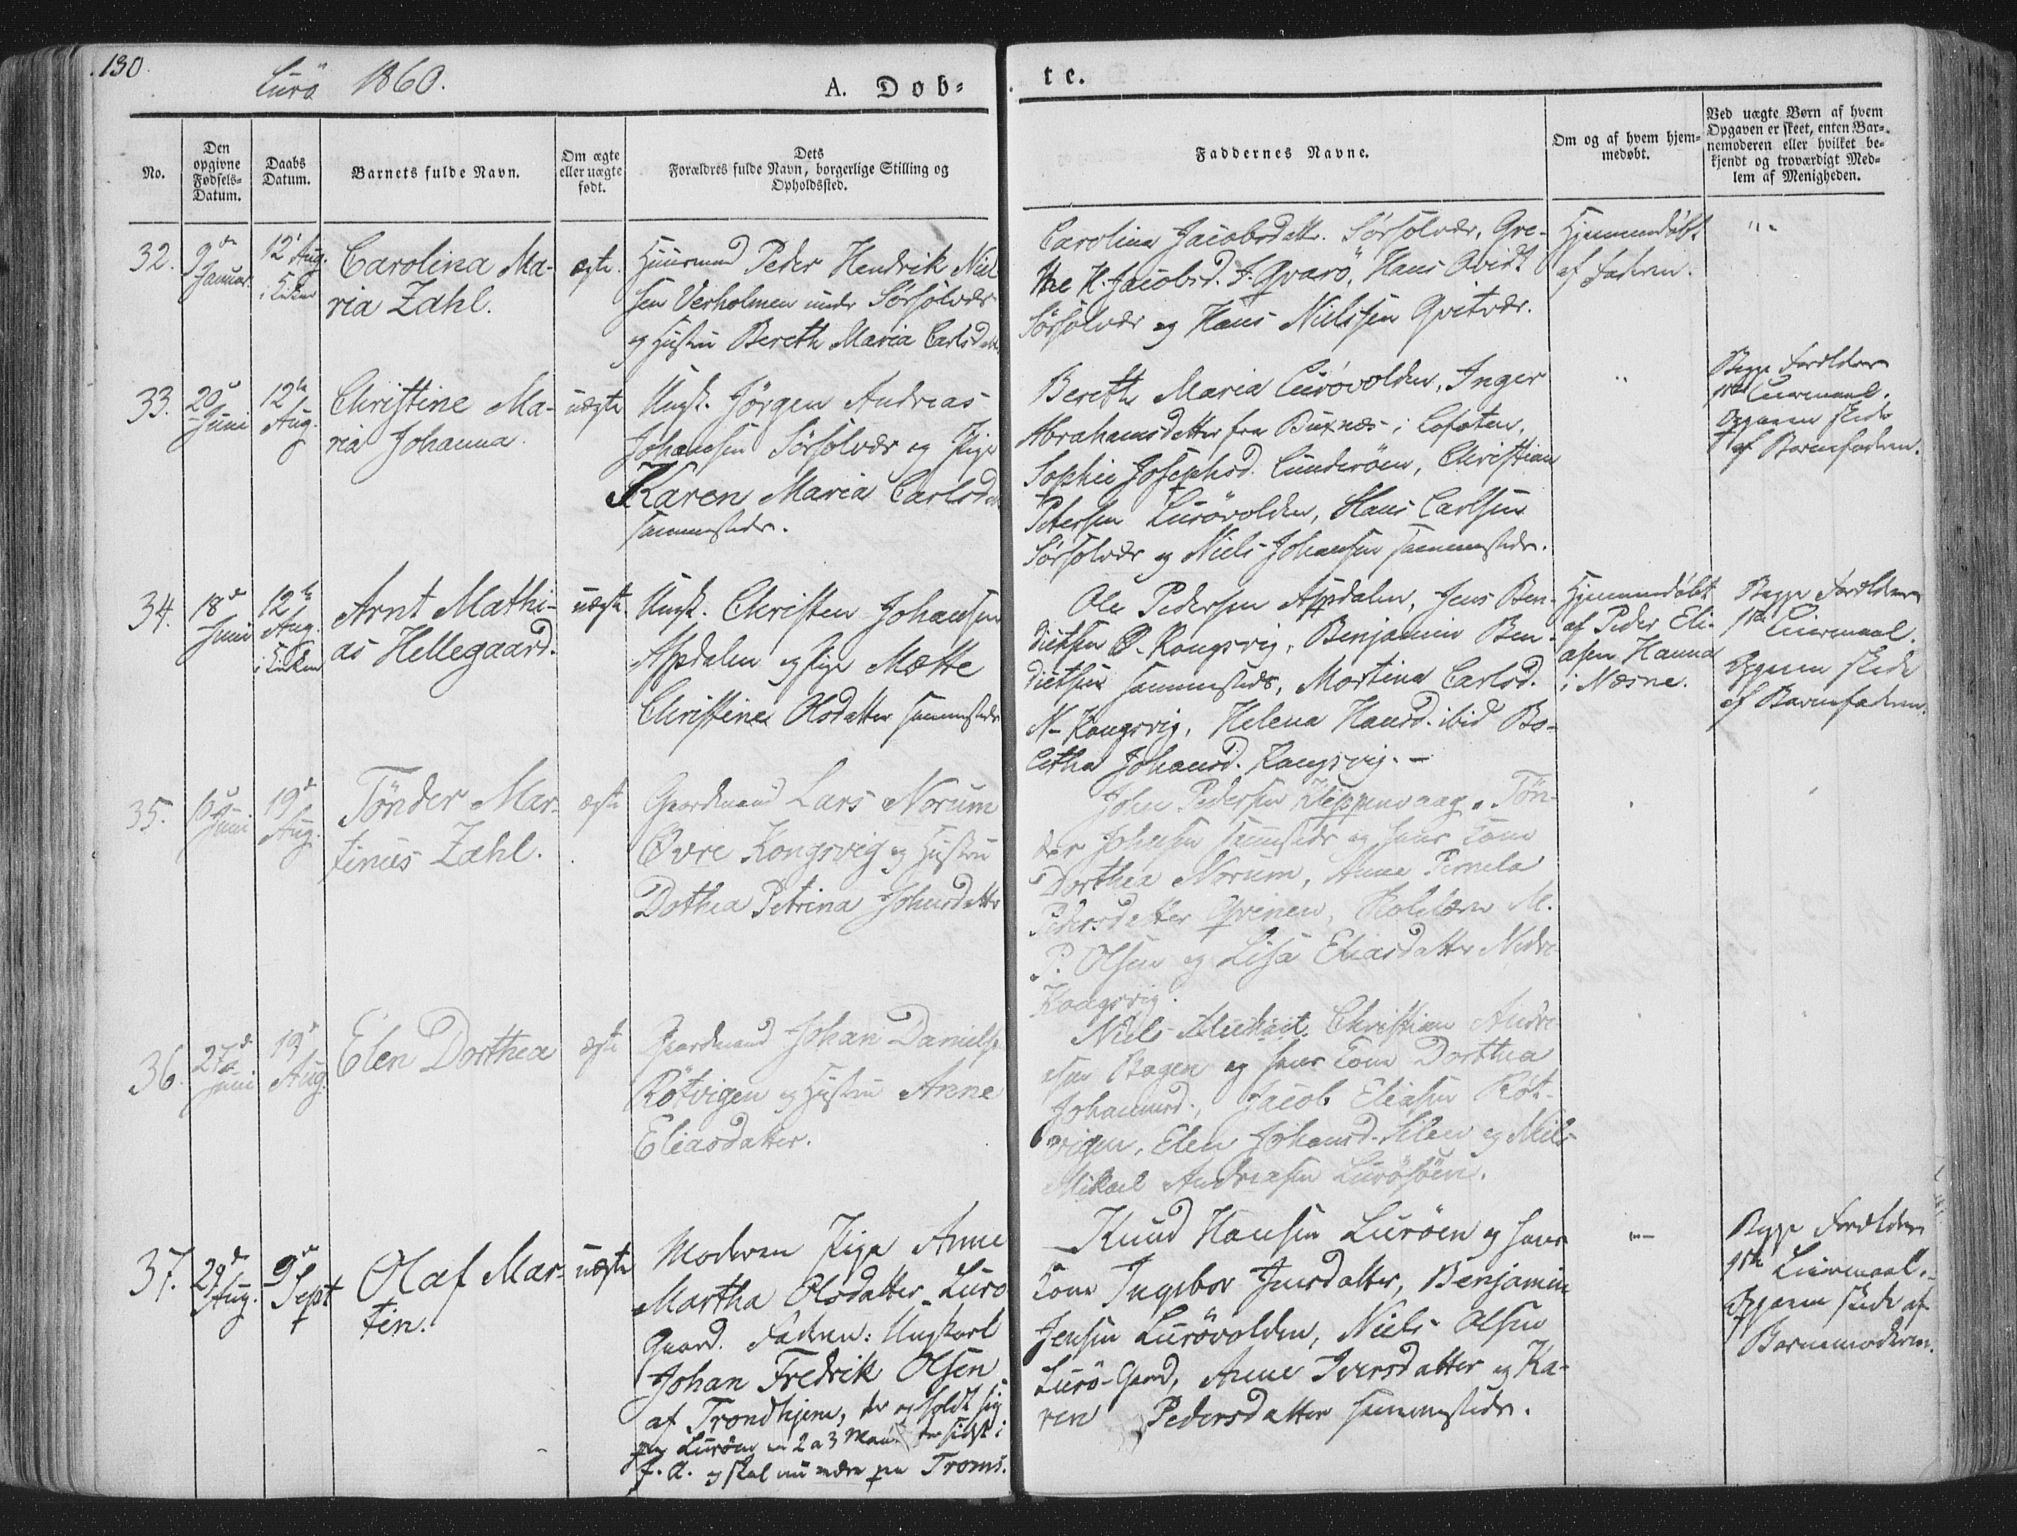 130.
Lurö 1860.
A. Døb-
te.
No.
Den
opgivne
Fødsels-
Datum.
Daabs
Datum.
Barnets fulde Navn.
Om ægte
eller uægte
født.
Dets
Forældres fulde Navn, borgerlige Stilling og
Opholdssted.
Faddernes Navne.
Om og af hvem hjem-
medøbt.
Ved uægte Børn af hvem
Opgaven er skeet, enten Bar-
nemoderen eller hvilket be-
kjendt og troværdigt Med-
lem af Menigheden.
32.
9de
Januar
12te Aug.
i Kirken
Carolina Ma-
ria Zahl.
ægte.
Huusmand Peder Hendrik Niel
sen Verholmen under Sörsolvær
og Hustru Bereth Maria Carlsdatter
Carolina Jacobsdatter Sörsolvær, Gre-
the H. Jacobsd. Qvarö, Hans Qvidt
Sörsolvær og Hans Nielssen Qvitvær.
Hjemmedøbt
af Faderen.
33.
20de
Juni
12te
Aug.
Christine Ma-
ria Johanna.
uægte
Ungk. Jörgen Andreas
Johansen Sörsolvær og Pige
Karen Maria Carlsdatter
sammesteds.
Bereth Maria Lurövolden, Inger
Abrahamsdatter fra Buxnæs i Lofoten,
Sophie Josephsd. Lunderöen, Christian
Petersen Lurövolden, Hans Carlsen
Sörsolvær og Niels Johansen sammesteds.
Begge Forældres
1ste Leiermaal.
Opgaven skede
af Barnefaderen.
34.
18de
Juni
12te
Aug.
i Kirken
Arnt Mathi-
as Hellegaard.
uægte
Ungk. Christen Johansen
Aspdalen og Pige Mætte
Christine Olsdatter sammesteds
Ole Pedersen Aspdalen, Jens Ben-
dictsen Ö. Kongsvig, Benjamin Ben-
dictsen sammesteds, Martina Carlsd.
N. Kongsvig, Helena Hansd. ibid Bo-
letha Johansd. Kongsvig.
Hjemmedøbt
af Peder Eli-
asen Hanna
i Næsne.
Begge Forældres
1ste Leiermaal.
Opgaven skede
af Barnefaderen.
35.
Juni
19de
Aug.
Tönder Mar-
tinus Zahl.
ægte
Gaardmand Lars Norum
Övre Kongsvig og Hustru
Dothea Petrina Johnsdatter
John Pedersen Kleppenvaag, Tön-
der Johnsen sammesteds og hans Kone
Dorthea Norum, Anne Pernela
Pedersdatter Qvinen, M.
P. Olsen og Lisa Eliasdatter Nedre
Kongsvig.
36.
27de
Juni
19de
Aug.
Elen Dorthea
ægte
Gaardmand Johan Danielsen
Rötvigen og Hustru Anne
Eliasdatter.
Niels Christian Andre-
asen Bogen og hans Kone Dorthea
Johannesd., Jacob Eliasen Röt-
vigen, Elen Johansd. Silen og Niels
Mikael Andreasen Lurösöen.
37.
29de
Aug.
9de
Sept
Olaf Mar-
tin.
uægte
Moderen Pige Anne
Martha Olsdatter Lurö
Gaard. Faderen: Ungkarl
Johan Fredrik Olsen
af Trondhjem, der opholdt sig
paa Luröen en 2 a 3 Maaneder sidst i
f. A. og skal nu være paa Troms.
Knud Hansen Luröen og hans
Kone Ingebor Jensdatter, Benjamin
Jensen Lurövolden, Niels Olsen
Lurö-Gaard, Anne Iversdatter og Ka-
ren Pedersdatter sammesteds.
Begge Forældres
1ste Leiermaal.
Opgaven skede af
Barnemoderen.